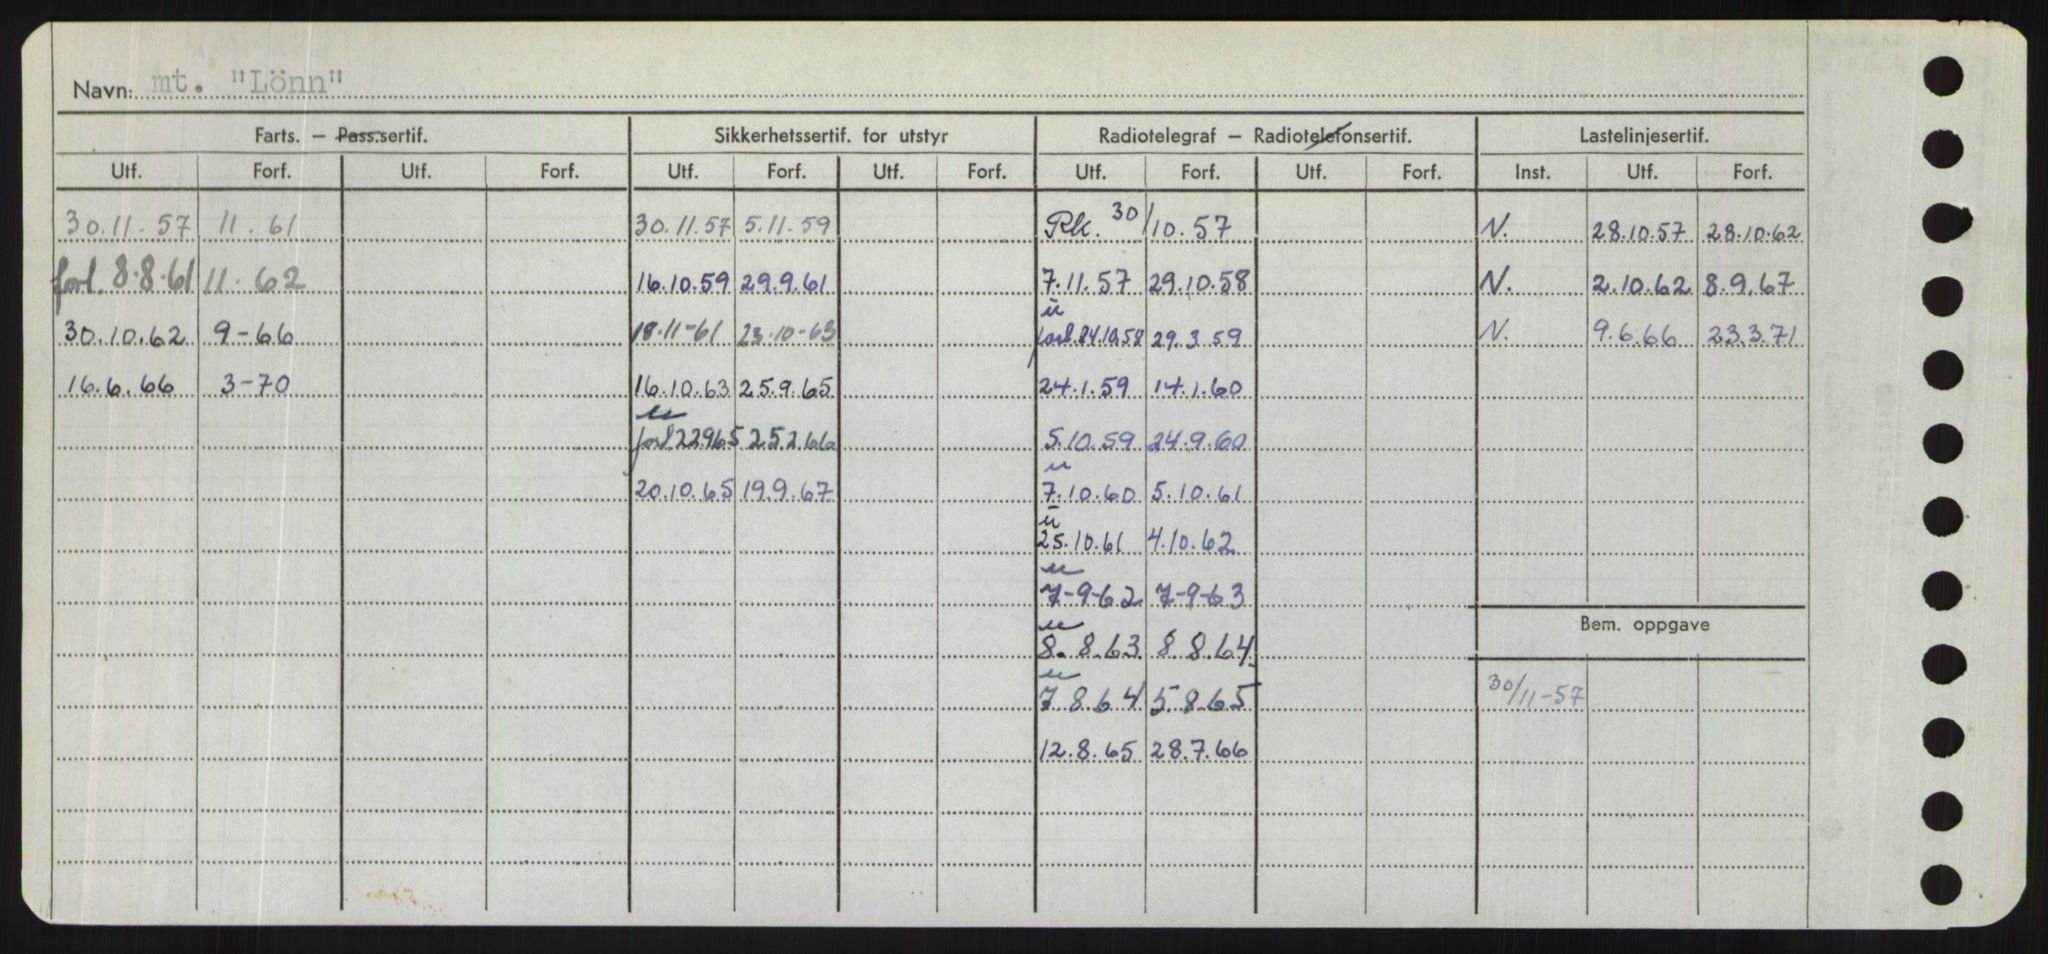 Navn: mt. "Lönn"
Farts. — Pass.sertif. Sikkerhetssertif. for utstyr Radiotelegraf — Radiotelefonsertif. Lastelinjesertif.
Utf. Forf. Utf. Forf. Utf. Forf. Utf. Forf. Utf. Forf. Utf. Forf. Inst. Utf. Forf.
30.11.57 11.61 30.11.57 5.11.59 Rk. 30/10.57 N. 28.10.57 28.10.62
forl. 8.8.61 11.62 16.10.59 29.9.61 7.11.57 29.10.58 N. 2.10.62 8.9.67
30.10.62 9-66 18.11-61 23.10-63 forl. 24.10.58 29.3.59 N. 9.6.66 23.3.71
16.6.66 3-70 16.10.63 25.9.65 24.1.59 14.1.60
forl 22965 25266 5.10.59 24.9.60
20.10.65 19.9.67 7.10.60 5.10.61
25.10.61 4.10.62
7-9-62 7-9-63
Bem. oppgave
8.8.63 8.8.64
7 8.64 5.8.65 30/11-57
12.8.65 28.7.66